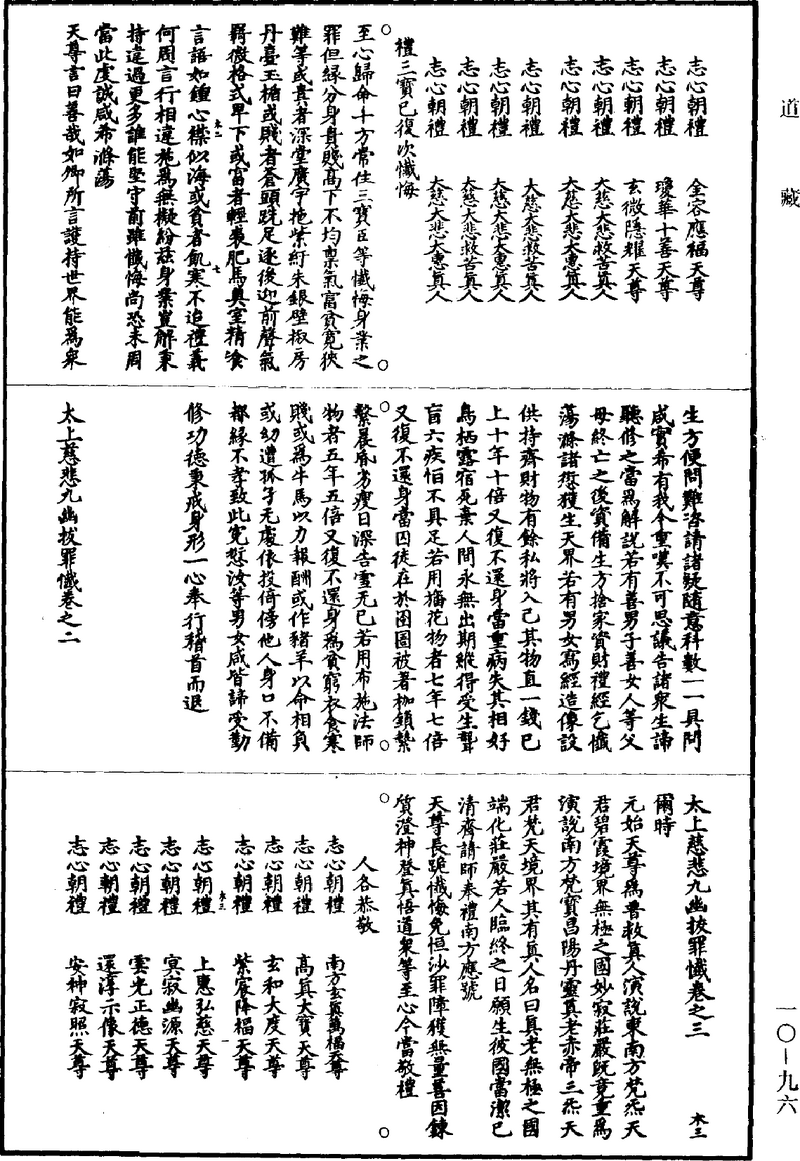 道藏
志心朝禮　金容應福天尊
志心朝禮　瓊華十善天尊
志心朝禮　玄微隱耀天尊
志心朝禮　大慈大悲救苦真人
志心朝禮　大慈大悲大惠真人
志心朝禮　大慈大悲救苦真人
志心朝禮　大慈大悲大惠真人
志心朝禮　大慈大悲救苦真人
志心朝禮　大慈大悲大惠真人
禮三寶已復次懺悔
至心歸命十方常住三寶臣等懺悔身業之
罪但緣分身貴賤高下不均稟氣富貧寬狹
難等或貴者深堂廣宇拖紫紆朱銀壁椒房
丹臺玉楯或賤者蒼頭跣足逐後迎前聲氣
羇微格式卑下或富者輕裘肥馬奧室精飡
木二
七
言語如鍾心襟似海或貧者飢寒不追禮義
何周言行相違施為無擬紛茲身業豈解東
持違過更多誰能堅守前雖懺悔尚恐未周
當此虔誠咸希滌蕩
天尊言曰善哉如卿所言護持世界能為衆
生方便問難咨請諸疑隨意科數一一具門
咸實希有我今重嘆不可思議告諸衆生諦
聽修之當為解說若有善男子善女人等父
母終亡之後資備生方捨家資財禮經乞懺
蕩滌諸愆獲生天界若有男女寫經造像設
供持齋財物有餘私將入己其物直一錢已
上十年十倍又復不還身當重病失其相好
鳥栖露宿死棄人間永無出期縱得受生聾
盲六疾怕不具足若用旛花物者七年七倍
又復不還身當囚徒在於囹圄被著枷鎖縶
繫晨昏劣瘦日深告雪无已若用布施法師
物者五年五倍又復不還身為貧窮衣食寒
賤或為牛馬以力報酬或作豬羊以命相負
或幼遭孤子无處依投倚傍他人身口不備
都緣不孝致此寃愆汝等男女咸皆諦受勤
修功德秉戒身形一心奉行稽首而退
太上慈悲九幽拔罪懺卷之二
太上慈悲九幽拔罪懺卷之三
木三
爾時
元始天尊為普救真人演說東南方梵炁天
君碧霞境界無極之國妙寂莊嚴既竟重為
演說南方梵寶昌陽丹靈真老赤帝三炁天
君梵天境界其有真人名曰真老無極之國
端化莊嚴若人臨終之日願生彼國當潔已
清齊請師奉禮南方應號
天尊長跪懺悔免恒沙罪障獲無量善因鍊
質澄神聲真悟道衆等至心今當敬禮
人各恭敬
志心朝禮　南方玄真萬福天尊
志心朝禮　高真大寶天尊
志心朝禮　玄和大度天尊
志心朝禮　紫宸降福天尊
木三
一
志心朝禮　上惠弘慈天尊
志心朝禮　冥寂幽源天尊
志心朝禮　雲光正德天尊
志心朝禮　還淳示像天尊
志心朝禮　安神寂照天尊
一〇—九六